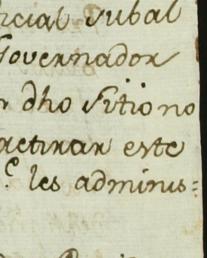 rcial subal
Governador
dho sitio no
actirar este
e les adminis=